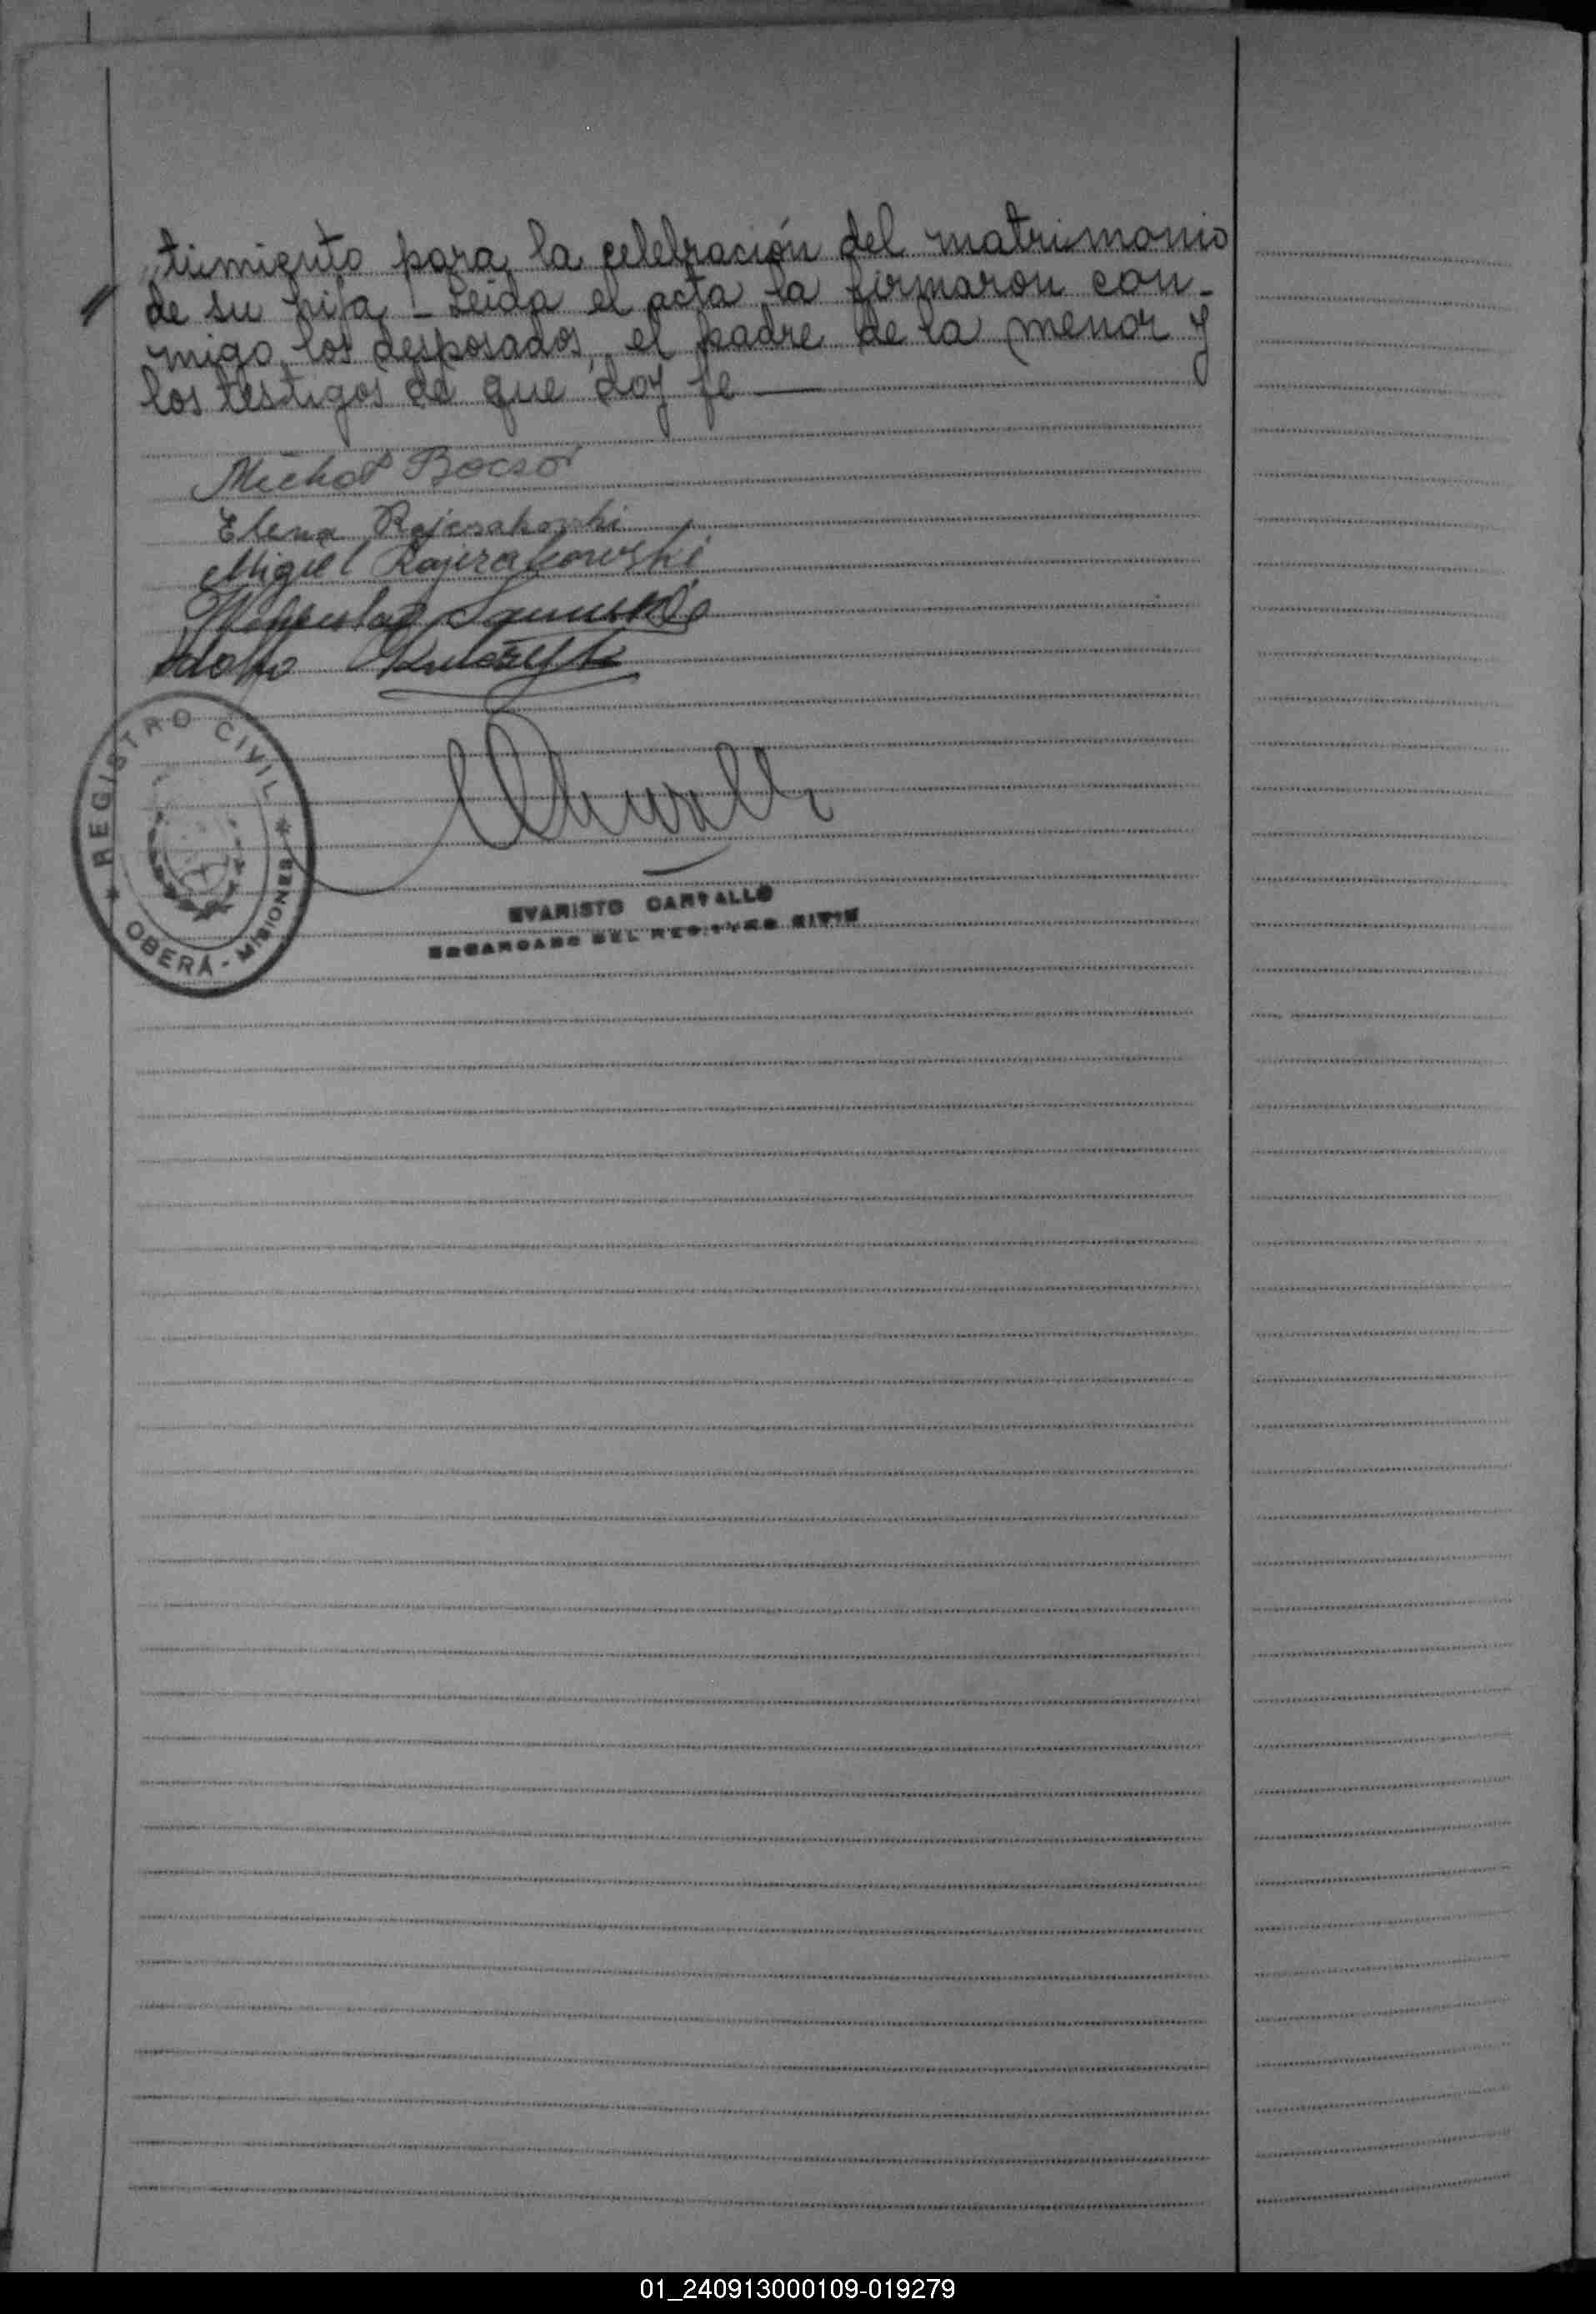 "timiento para la celebración del matrimonio
de su hija - Leida el acta la firmaron con-
migo, los desposados, el padre de la menor y
los testigos de que doy fe
Michał Bocsor
Elena Rajczakowski
Miguel Rajczakowski
Adolfo
REGISTRO CIVIL
OBERÁ - MISIONES
EVARISTO CARVALLO
ENCARGADO DEL REGISTRO CIVIL
01_240913000109-019279